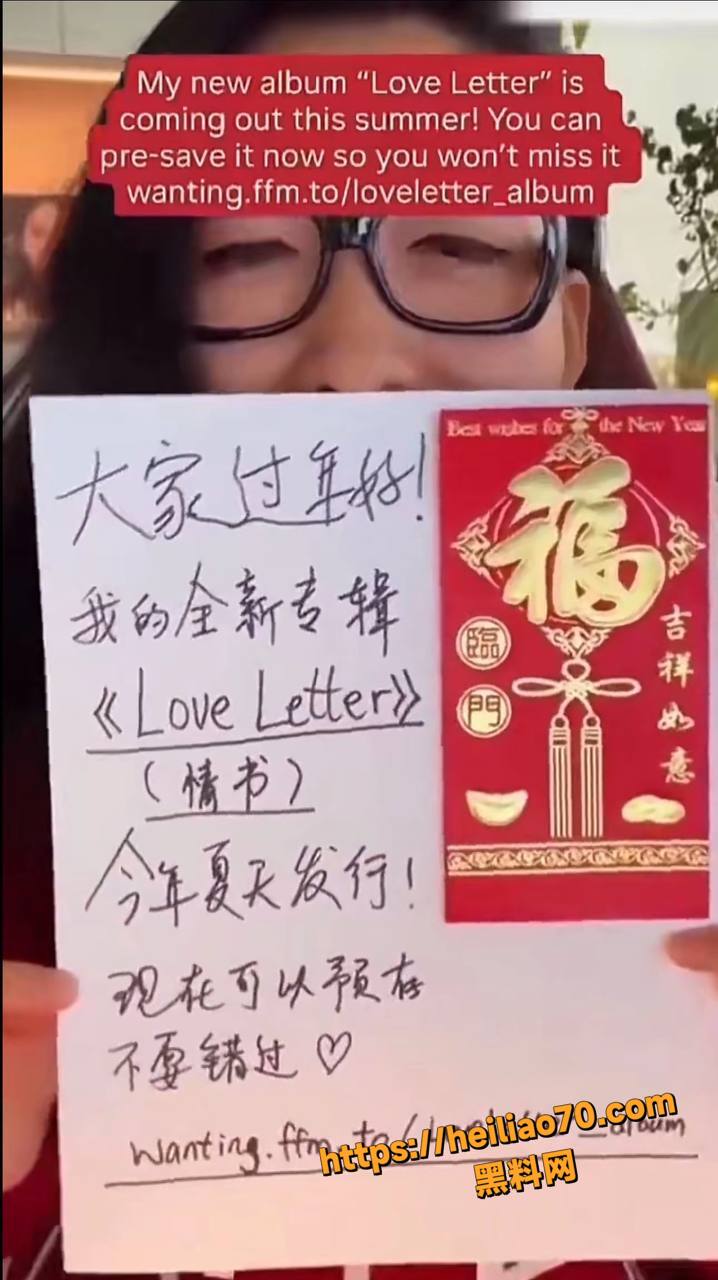 My new album “Love Letter” is
coming out this summer! You can
pre-save it now so you won’t miss it
wanting.ffm.to/loveletter_album
大家过年好!
我的全新专辑
《Love Letter》
(情书)
今年夏天发行!
现在可以预存
不要错过♡
wanting.ffm.to/
_album
Best wishes for the New Year
福
臨
門
吉祥如意
https://heiliao70.com
黑料网